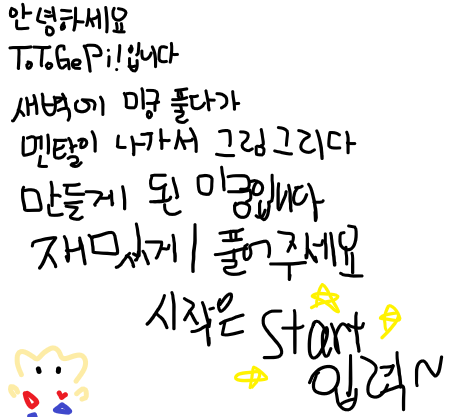 안녕하세요
ToToGePi!입니다
새벽에 미궁 풀다가
멘탈이 나가서 그림그리다
만들게 된 미궁입니다
재밌게 풀어주세요
시작은 start
입력~